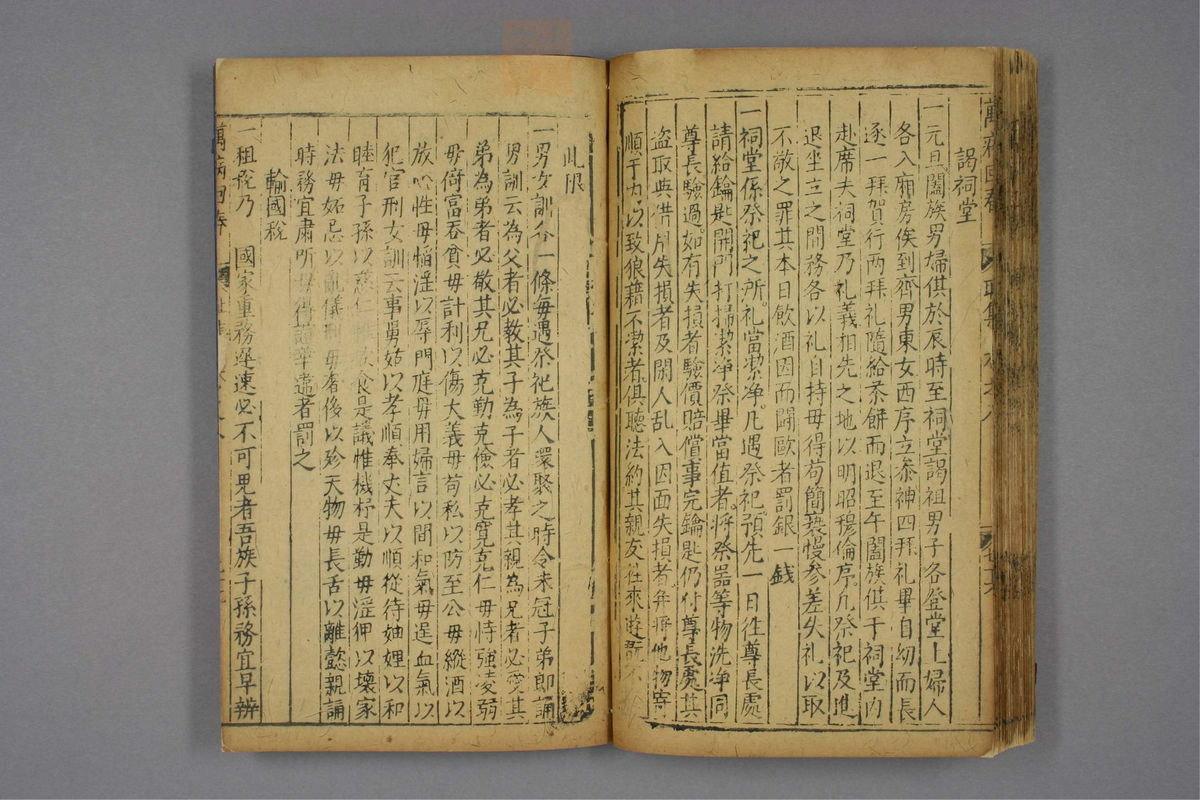 謁祠堂
一元旦闔族男婦俱於辰時至祠堂謁祖男子各登堂上婦人
各入廂房俟到齊男東女西序立叅神四拜礼畢自幼而長
逐一拜賀行两拜礼隨給茶餅而退至午闔族俱于祠堂内
赴席夫祠堂乃礼義相先之地以明昭穆倫序凢祭祀及進
退坐立之間務各以礼自持毋得苟簡亵慢參差失礼以取
不敬之罪其本日飲酒因而閗歐者罰銀一銭
一祠堂係祭祀之所礼當潔净凢遇祭祀預先一日徃尊長處
請給鑰匙開門打掃潔净祭畢當值者將祭噐等物洗净同
尊長驗過如有失損者驗價賠償事完鑰匙仍付尊長處其
盗取與借用失損者及閑人乱入因而失損者并將他物寄
順于内以致狼藉不潔者俱聽法約其親友徃來遊
此限
一男女訓各一條每遇祭祀族人還聚之時令未冠子弟即誦
男訓云為父者必教其子為子者必孝其親為兄者必愛其
弟為弟者必敬其兄必克勤克儉必克寛克仁毋恃強凌弱
毋倚富吞貧毋計利以傷大義毋苟私以防至公毋縱酒以
放心性毋慆滛以辱門庭毋用婦言以間和氣毋逞血氣以
犯官刑女訓云事舅姑以孝順奉丈夫以順從待妯娌以和
睦育子孫以慈仁酒食是議惟機杼是勤毋滛狎以壊家
法毋妬忌以亂儀刑毋奢侈以殄天物毋長舌以離懿親誦
時務宜肅所毋得諠譁違者罰之
輸國稅
一租稅乃 國家重務遲速必不可免者吾族子孫務宜早辨